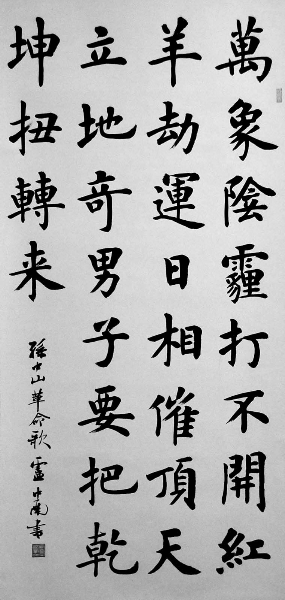 萬象陰霾打不開紅
羊劫運日相催頂天
立地奇男子要把乾
坤扭轉来
孫中山革命歌 盧中南書